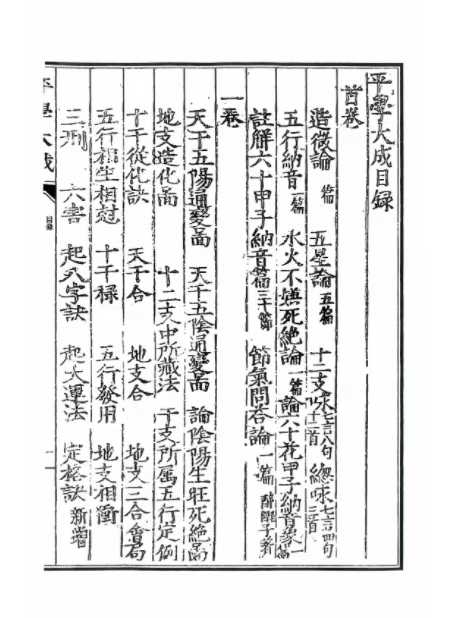 平學大成目録
首卷
造微論 一篇 五星論 五篇 十二支咏 七言八句 十二首 總咏 七言四句 三首
五行納音 一篇 水火不嫌死絶論 一篇 論六十花甲子納音象 一篇
註解六十甲子納音篇 三十篇 節氣問答論 一篇 醉醒子著
一卷
天干五陽通變啚 天干五陰通變啚 論陰陽生旺死絶啚
地支造化啚 十二支中所藏法 干支所屬五行定例
十干從化訣 天干合 地支合 地支三合會局
五行相生相尅 十干禄 五行發用 地支相衝
三刑 六害 起八字訣 起大運法 定格訣 新增
平學大成
目録
一